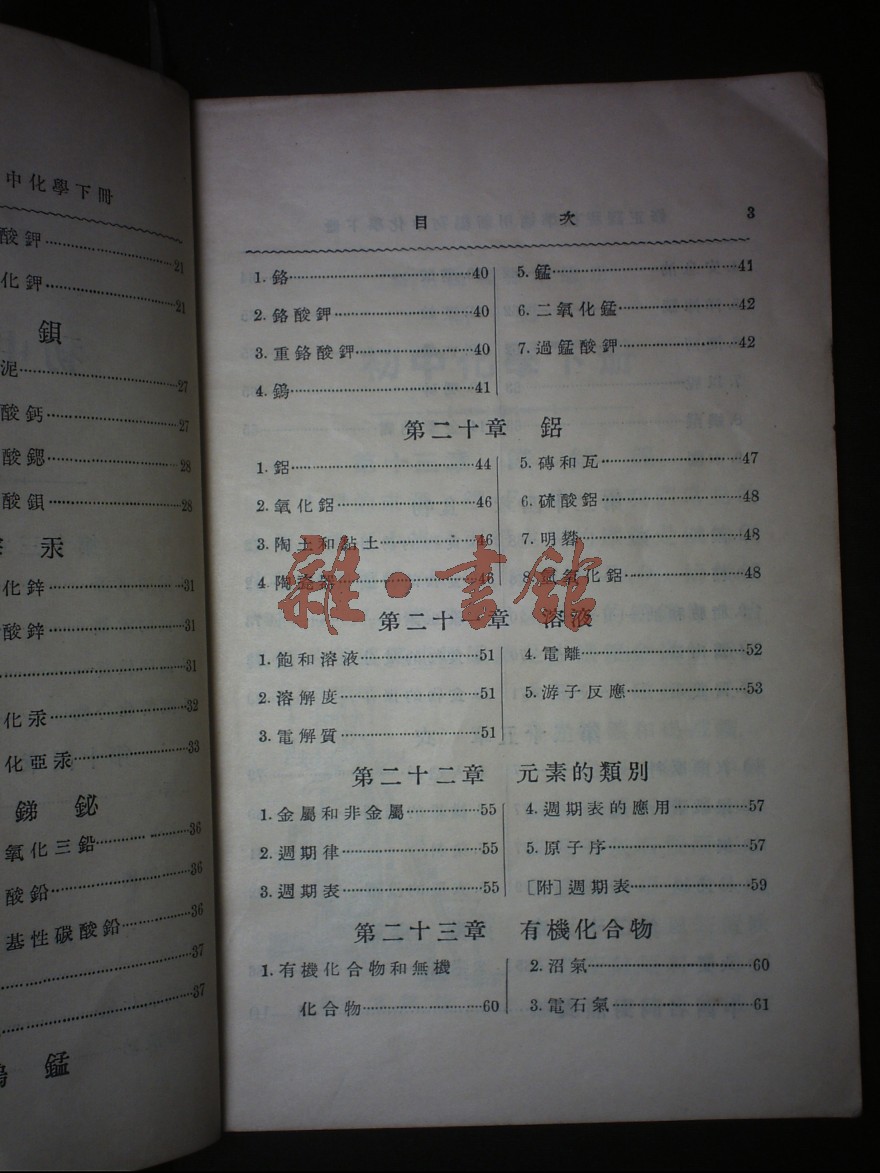 中化學下冊
酸鉀……21
化鉀……21
鋇
泥……27
酸鈣……27
酸鍶……28
酸鋇……28
汞
化鋅……31
酸鋅……31
……31
化汞……32
化亞汞……33
銻 鉍
氧化三鉛……36
酸鉛……36
基性碳酸鉛……36
……37
……37
錳
目 次 3
1. 鉻……40
2. 鉻酸鉀……40
3. 重鉻酸鉀……40
4. 鎢……41
5. 錳……41
6. 二氧化錳……42
7. 過錳酸鉀……42
第二十章 鋁
1. 鋁……44
2. 氧化鋁……46
3. 陶土和黏土……46
4. 陶瓷器……46
5. 磚和瓦……47
6. 硫酸鋁……48
7. 明礬……48
8. 氫氧化鋁……48
雜·書館
第二十一章 溶液
1. 飽和溶液……51
2. 溶解度……51
3. 電解質……51
4. 電離……52
5. 游子反應……53
第二十二章 元素的類別
1. 金屬和非金屬……55
2. 週期律……55
3. 週期表……55
4. 週期表的應用……57
5. 原子序……57
[附] 週期表……59
第二十三章 有機化合物
1. 有機化合物和無機
化合物……60
2. 沼氣……60
3. 電石氣……61